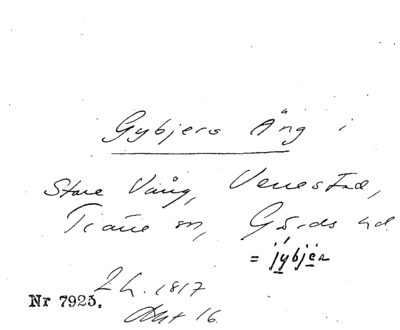 Gybjers Äng i
Stare Vång, Venestad,
Träne sn, Gärds hd
= jybjer
Lh. 1817
Akt 16.
Nr 7925.